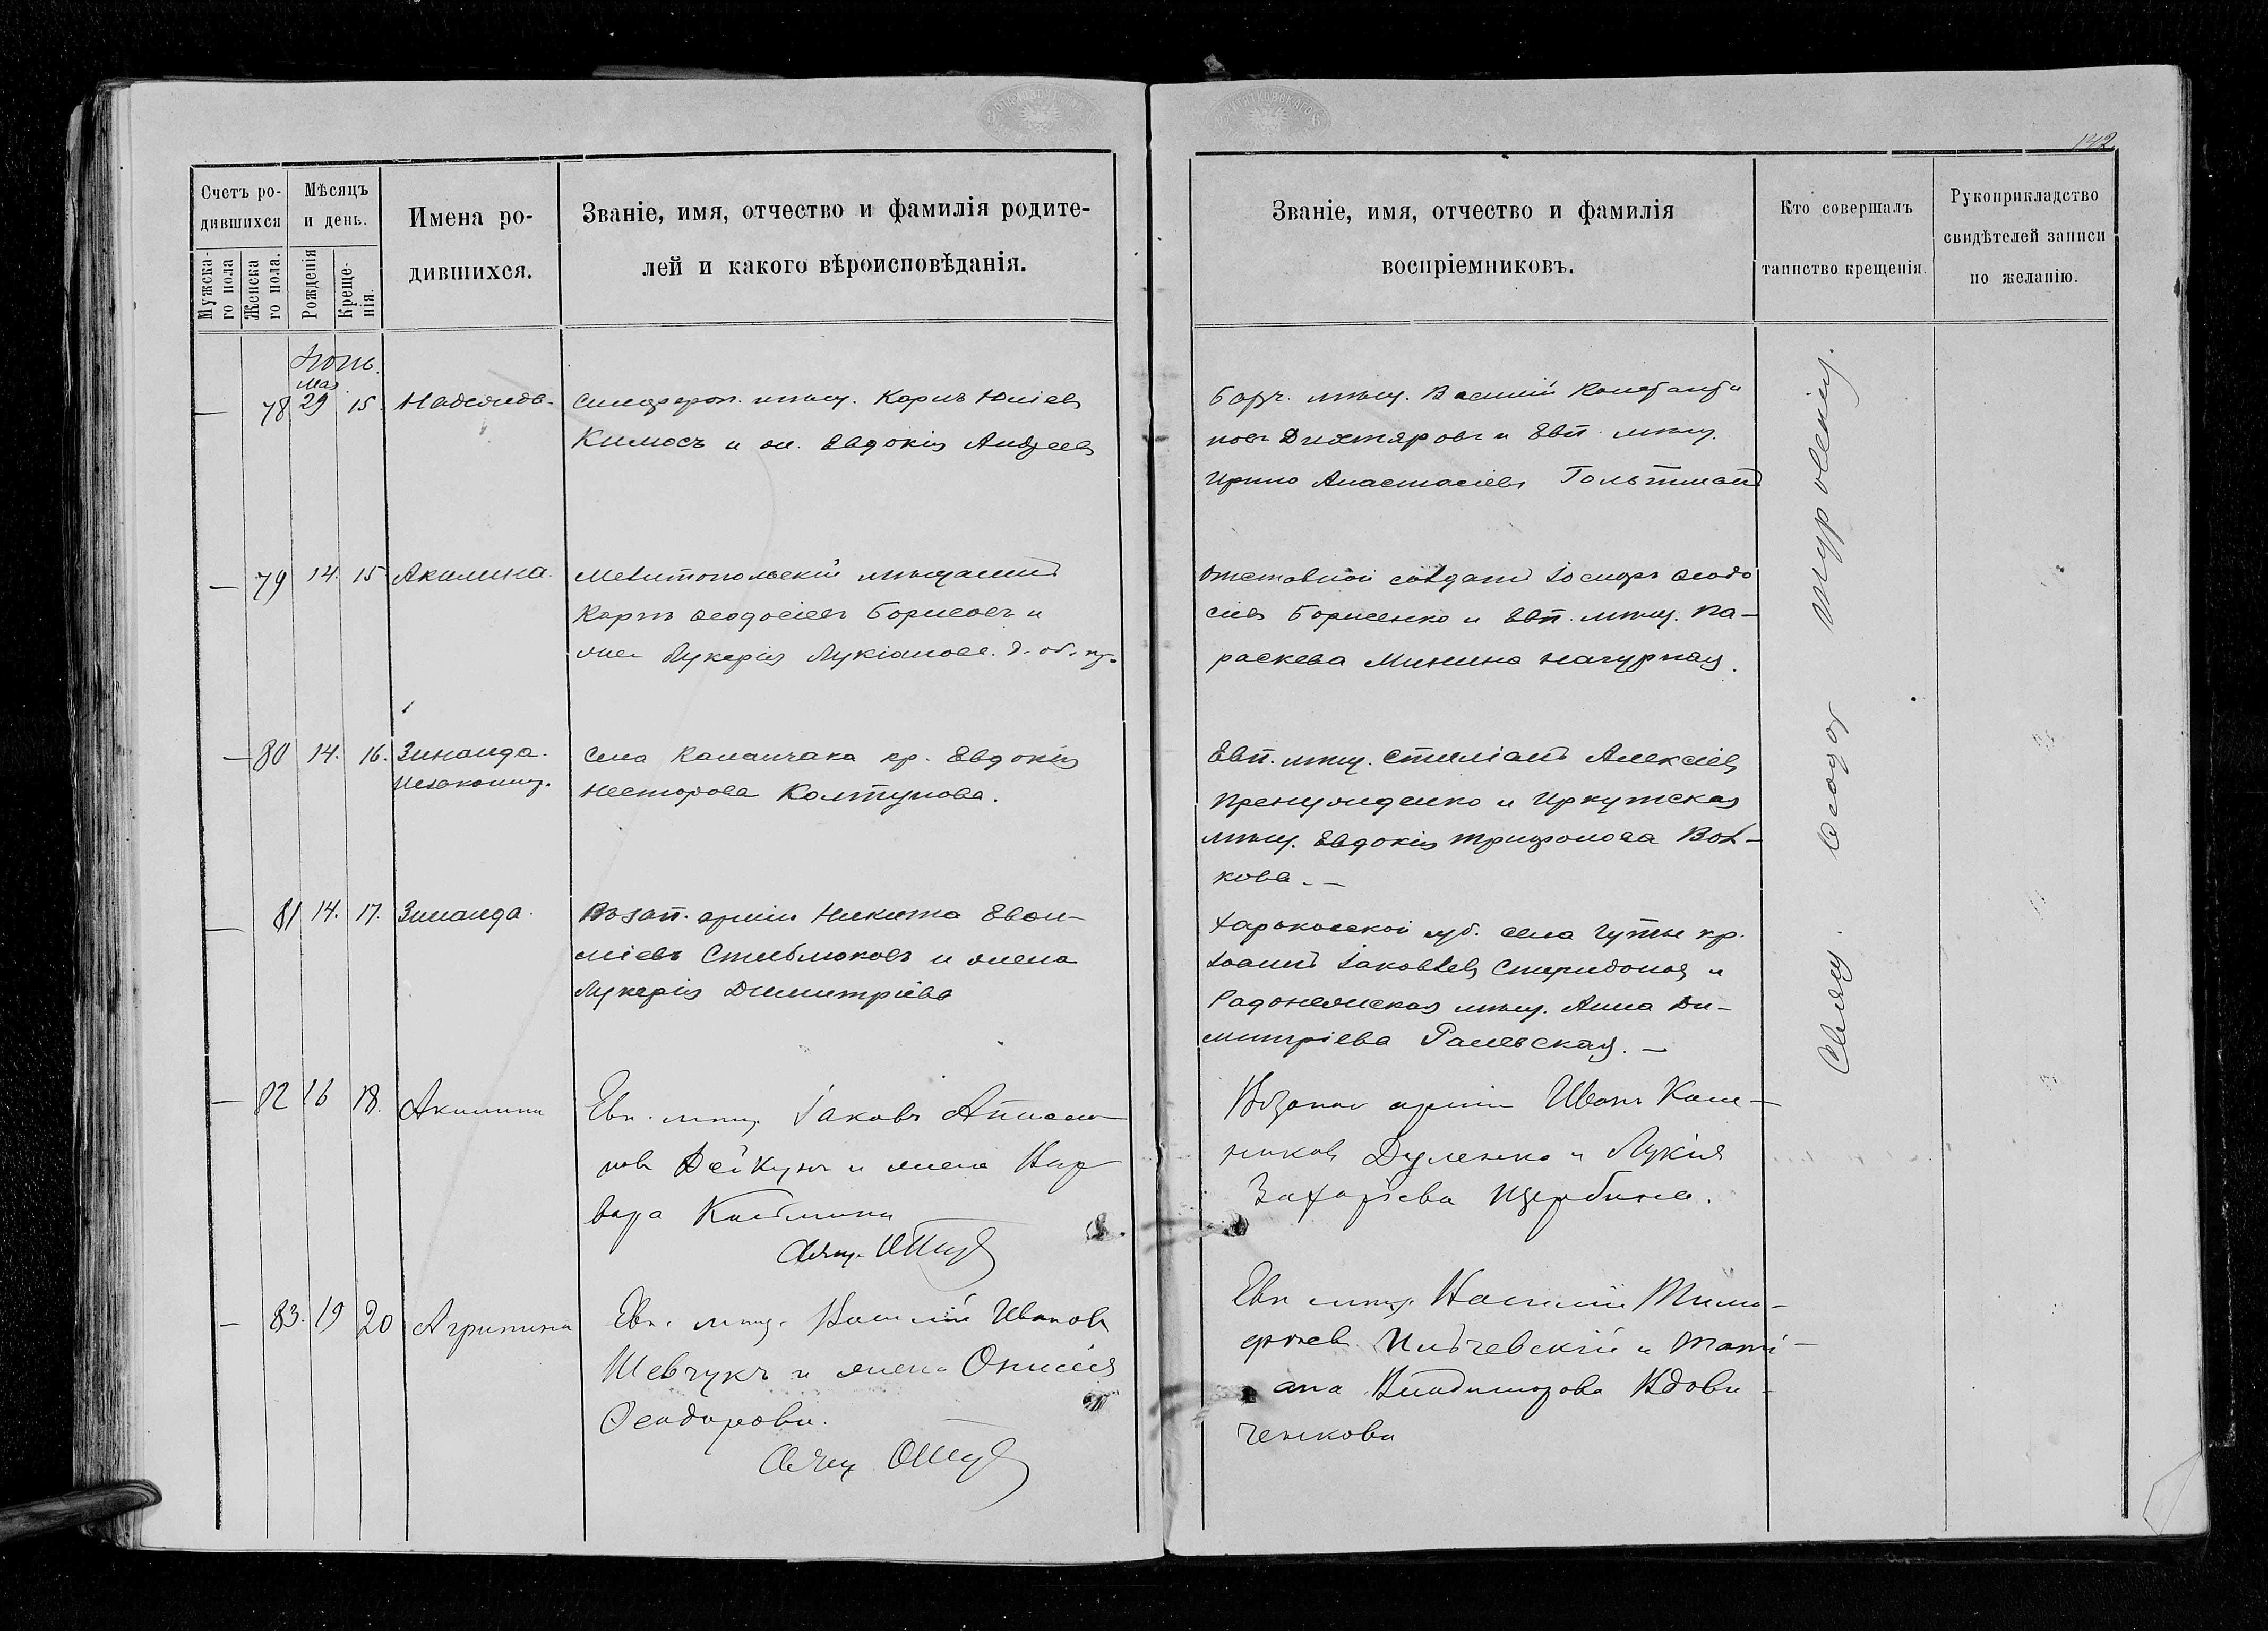 142.
Счетъ ро-
дившихся
Мужска-
го пола
Женска
го пола.
Мѣсяцъ
и день.
Рожденія
Креще-
нія.
Имена ро-
дившихся.
Званіе, имя, отчество и фамилія родите-
лей и какого вѣроисповѣданія.
Званіе, имя, отчество и фамилія
воспріемниковъ.
Кто совершалъ
таинство крещенія.
Рукоприкладство
свидѣтелей записи
по желанію.
Іюнь.
Мая
— 78 29 15 Надежда.
Симфероп. мѣщ. Карпъ
и ж. Евдокія Андреев
мѣщ. Василій Константи
новъ Дихтяровъ и Евп. мѣщ.
Ирина Анастасіев
— 79 14. 15 Акилина.
Мелитопольскій мѣщанинъ
Карпъ Ѳеодосіевъ Борисовъ и
жена Лукерія Лукіанова. д. об. пр.
Отставной солдатъ Іосифъ Ѳеодо
сіев Борисенко и Евп. мѣщ. Па-
раскева Минина Начурная.
— 80 14. 16. Зинаида.
Незаконнр.
Села Каланчака кр. Евдокія
Несторова Колтунова.
Евп. мѣщ. Стиліанъ Алексіев
и Иркутская
мѣщ. Евдокія Трифонова Вол-
кова. —
— 81 14. 17. Зинаида.
Въ зап. арміи Никита Евѳи-
міевъ и жена
Лукерія Димитріева
Харьковской губ. села Гуты кр.
Іоаннъ Іаковлев Спиридонов и
мѣщ. Анна Ди-
митріева Раевская. —
— 82 16 18. Акилина
Евп. мѣщ. Іаковъ
новъ Дейкунъ и жена Вар
вара
Свящ.
В запас арміи Иванъ Кали-
никовъ Дуленко и Лукія
Захаріева Щербина.
— 83. 19 20 Агрипина
Евп. мѣщ. Василій Ивановъ
Шевчукъ и жена Онисія
Ѳеодорова.
Свящ.
Евп мѣщ. Василій Тимо-
фѣев и Тати-
ана Владимірова Вдови-
ченкова
Свящ. Ѳеодор